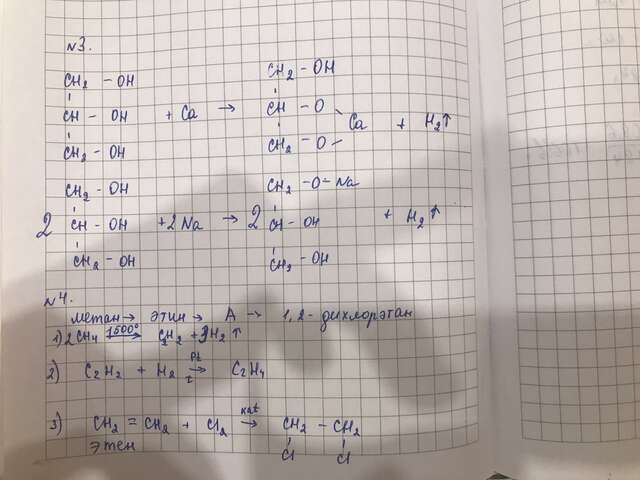 №3.
CH₂ – OH CH₂ – OH
CH – OH + Ca → CH – O
CH₂ – OH CH₂ – O – Ca + H₂↑
CH₂ – OH CH₂ – O – Na
2 CH – OH + 2 Na → 2 CH – OH + H₂↑
CH₂ – OH CH₂ – OH
№4.
метан → этин → А → 1,2 - дихлорэтан
1) 2CH₄ 1500° → C₂H₂ + 3H₂↑
2) C₂H₂ + H₂ Pt → t C₂H₄
3) CH₂ = CH₂ + Cl₂ kat → CH₂ – CH₂
этен Cl Cl